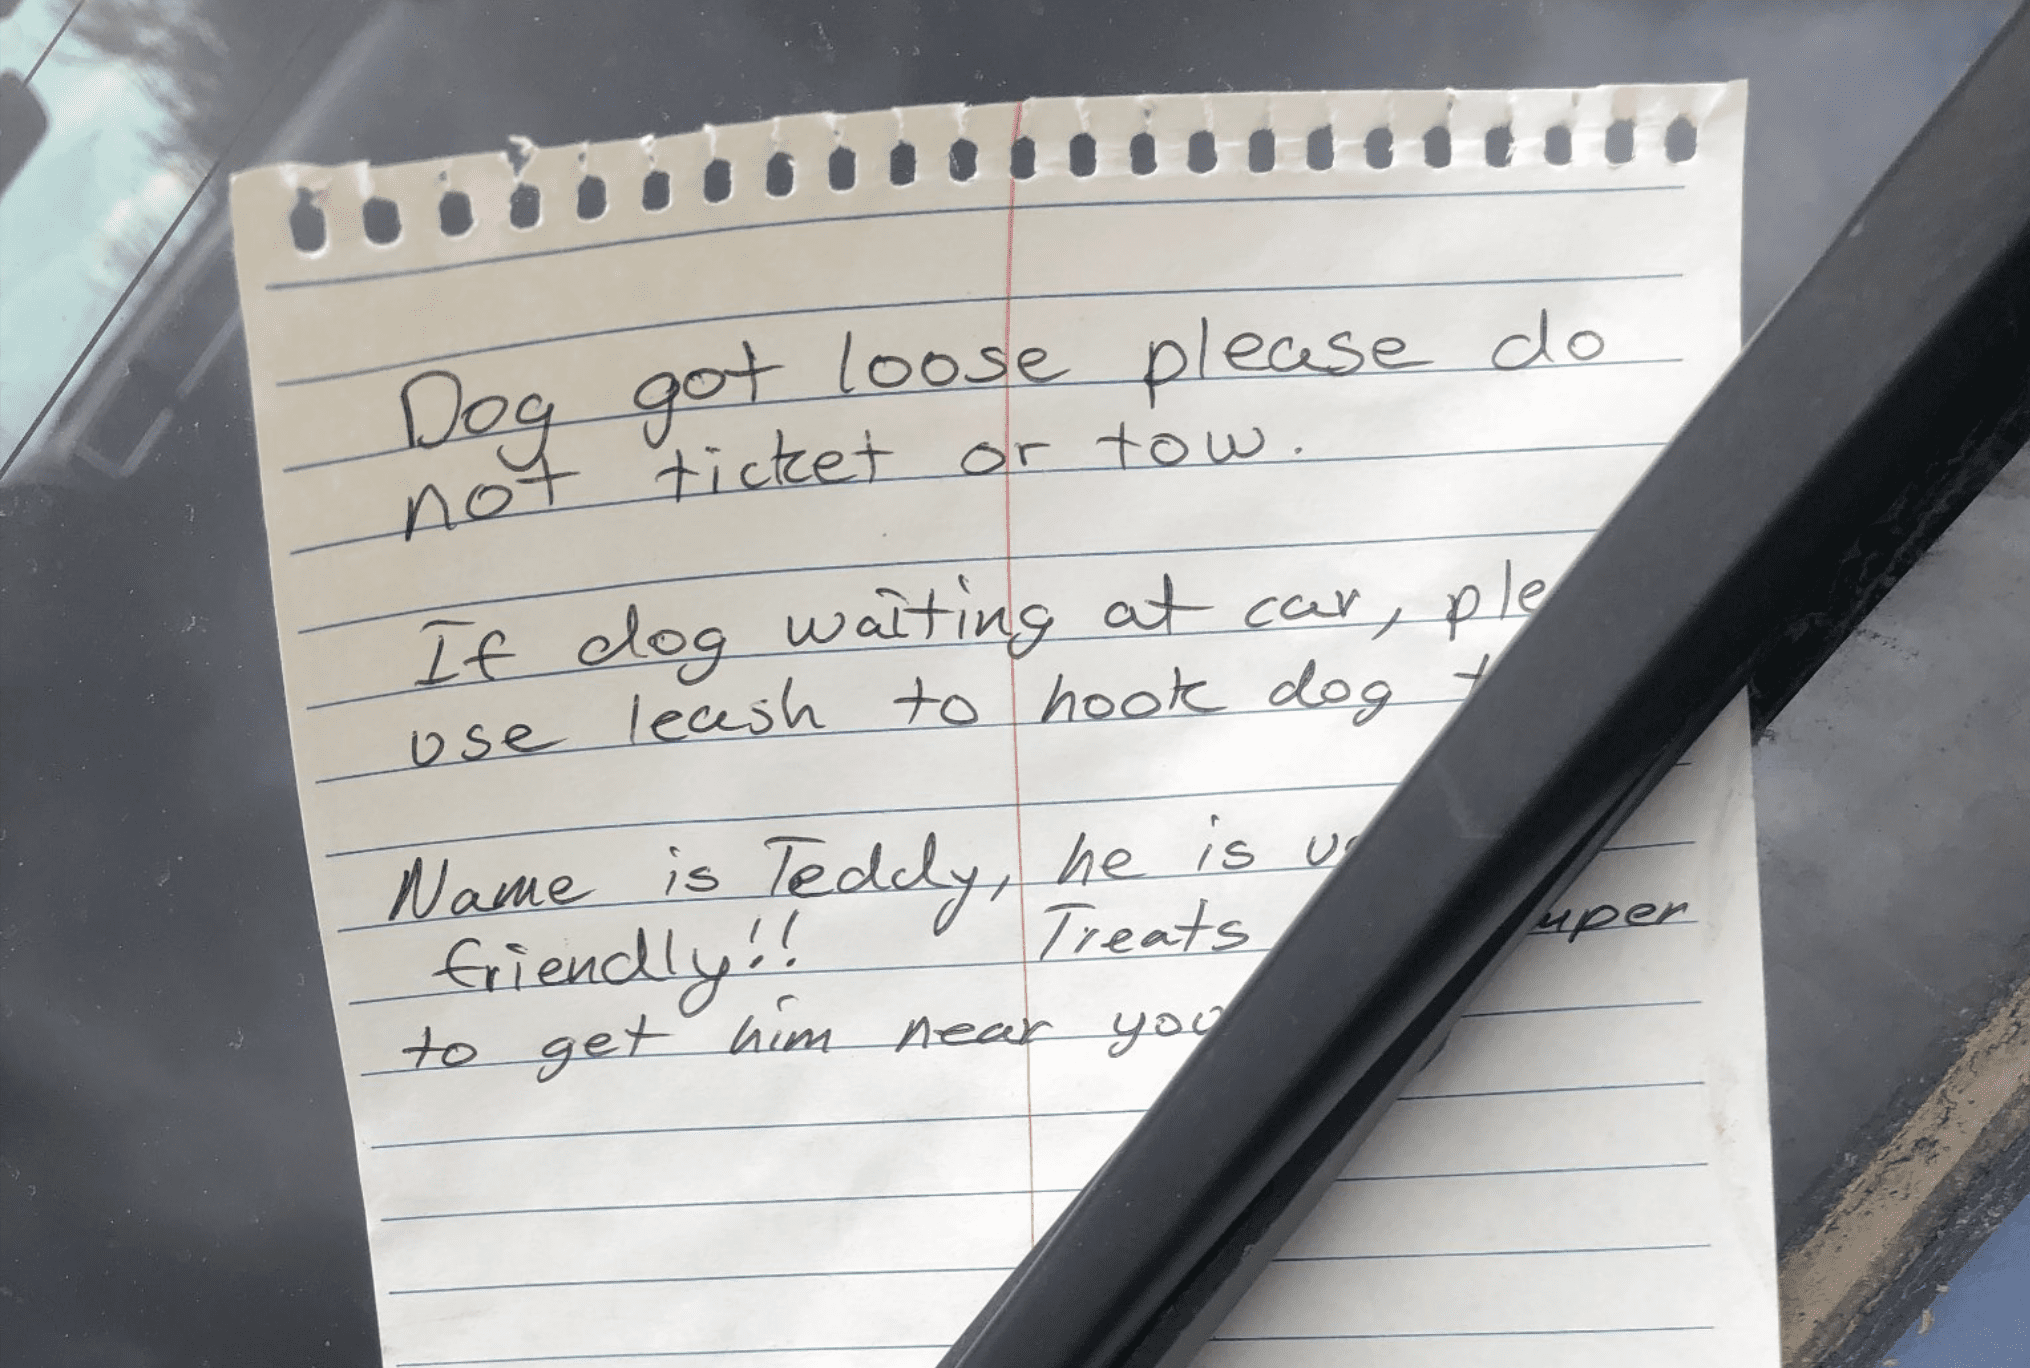 Dog got loose please do
not ticket or tow.
If dog waiting at car,
use leash to hook dog
Name is Teddy, he is
friendly!! Treats
to get him near